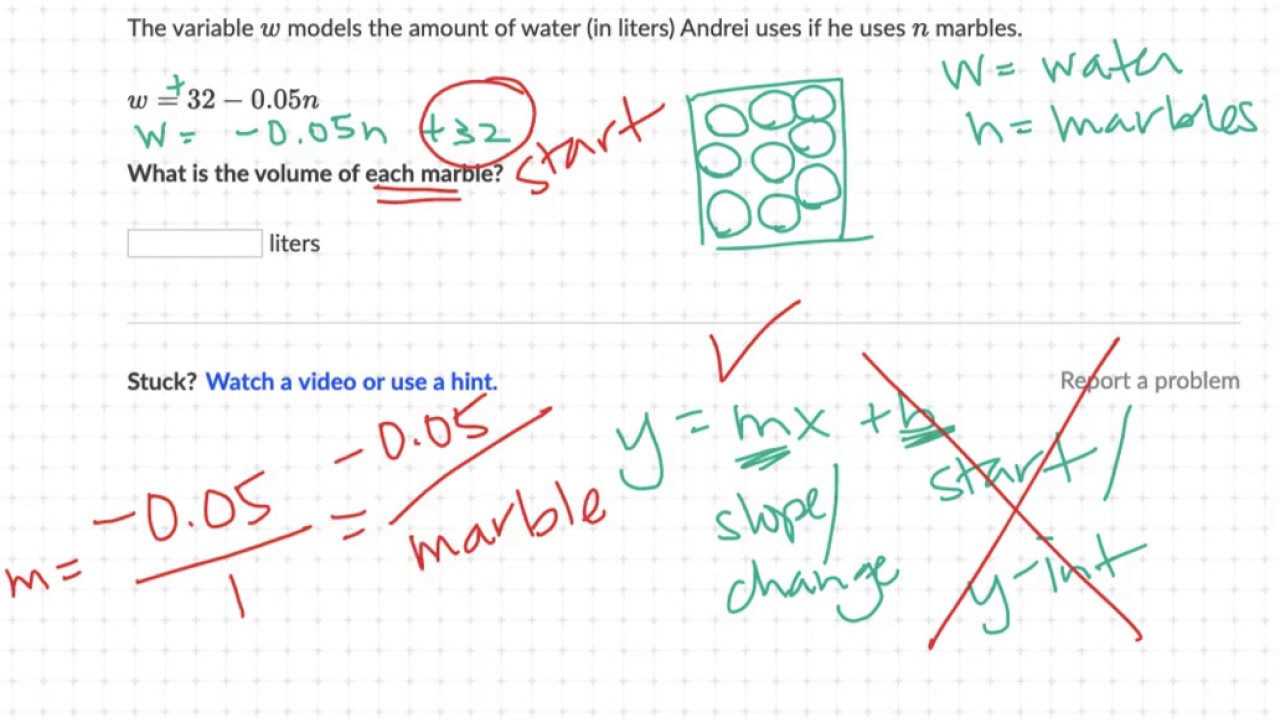 The variable w models the amount of water (in liters) Andrei uses if he uses n marbles.
W = water
n = marbles
w = +32 – 0.05n
W = -0.05n +32
start
What is the volume of each marble?
liters
Stuck? Watch a video or use a hint.
Report a problem
y = mx + b
slope/
change
start/
y-int
m = -0.05/1 = -0.05/marble